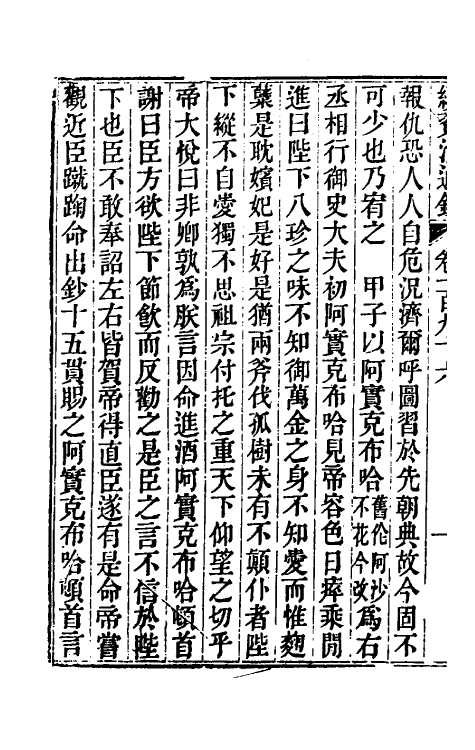 續資治通鑑 卷二百九十六 一
報仇恐人人自危況濟爾呼圖習於先朝典故今固不
可少也乃宥之 甲子以阿實克布哈舊作阿沙不花今改爲右
丞相行御史大夫初阿實克布哈見帝容色日瘁乘閒
進曰陛下八珍之味不知御萬金之身不知愛而惟麴
糵是耽嬪妃是好是猶兩斧伐孤樹未有不顚仆者陛
下縱不自愛獨不思祖宗付托之重天下仰望之切乎
帝大悅曰非卿孰爲朕言因命進酒阿實克布哈頓首
謝曰臣方欲陛下節飮而反勸之是臣之言不信於陛
下也臣不敢奉詔左右皆賀帝得直臣遂有是命帝嘗
觀近臣蹴踘命出鈔十五貫賜之阿實克布哈頓首言